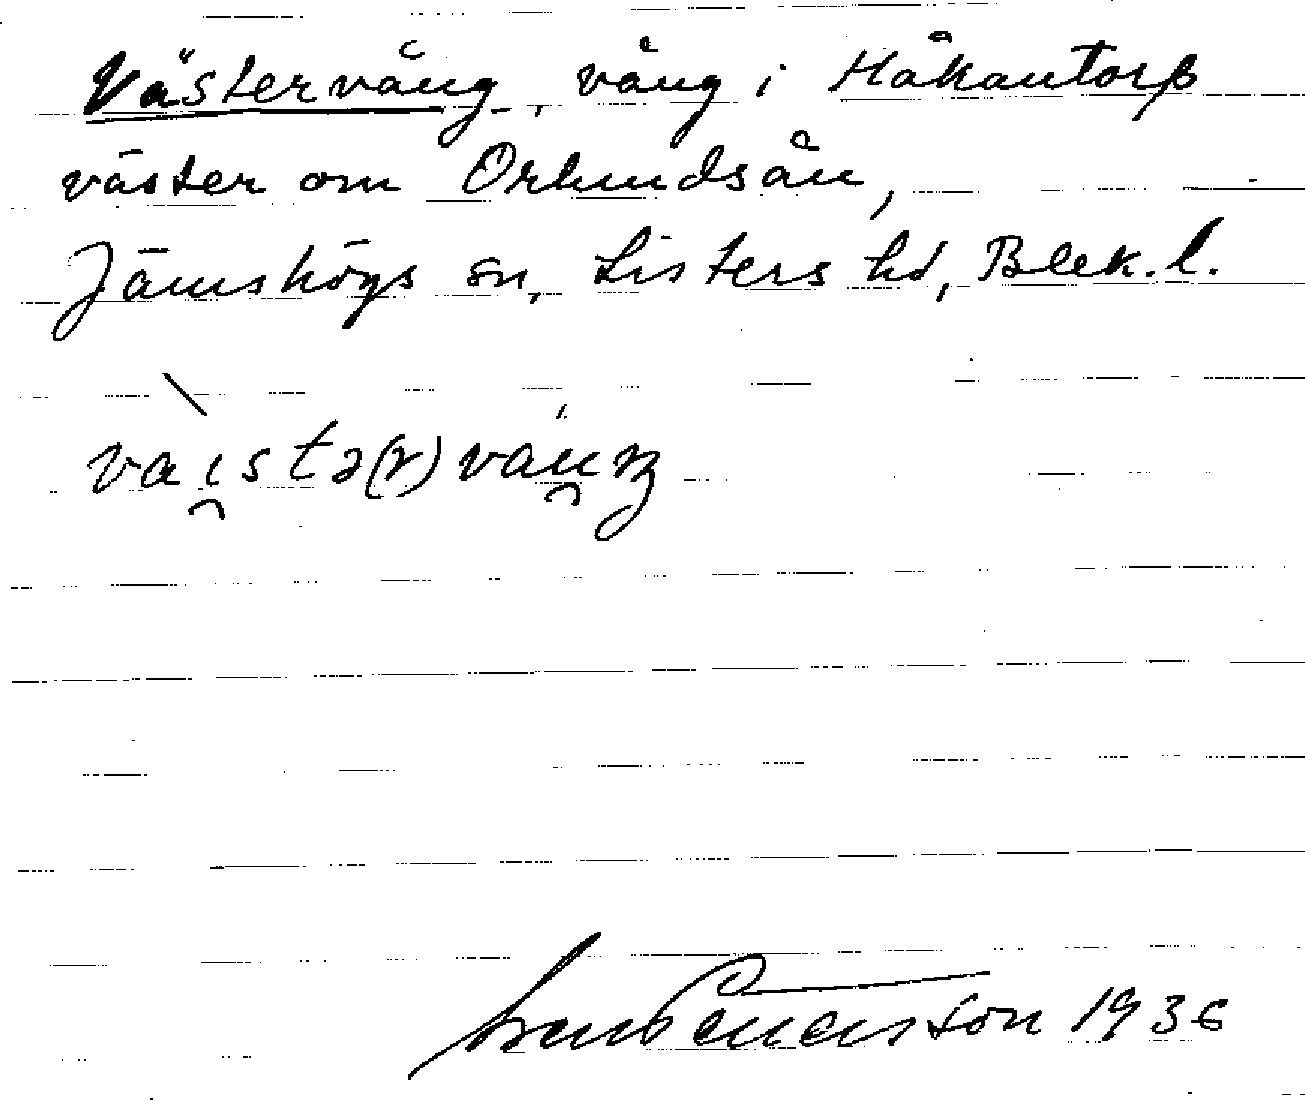 Västervång, vång i Håkantorp
väster om Orlundsån,
Jämshögs sn, Listers hd, Blek. l.
vaistə(r)vauŋ
1936